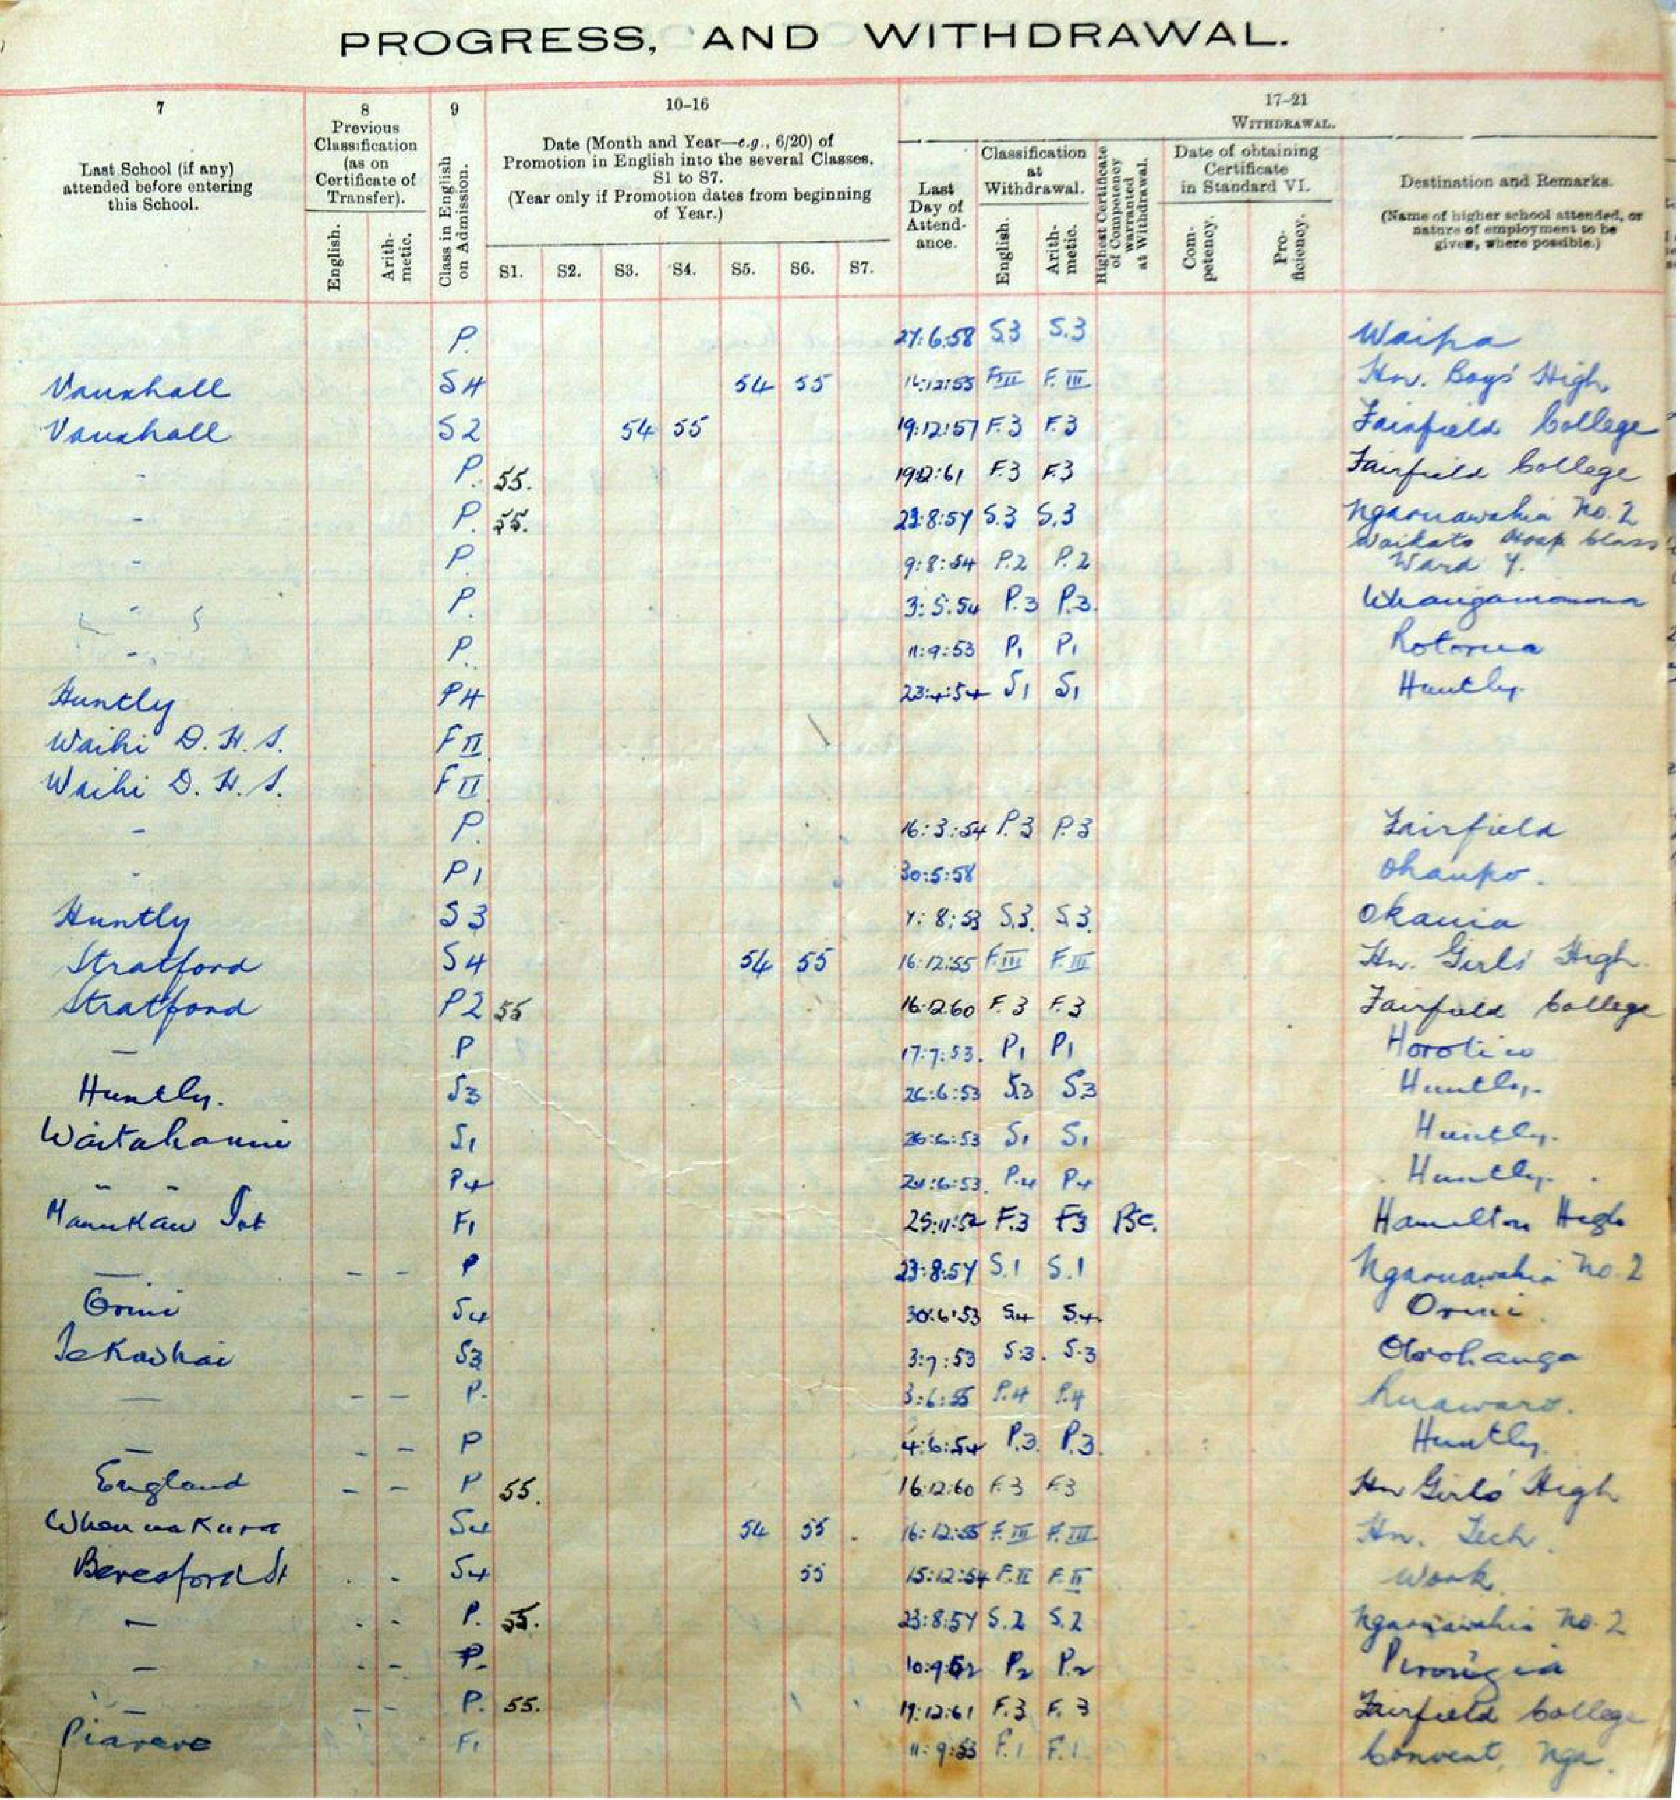 PROGRESS, AND WITHDRAWAL.
7 8 9 10–16 17–21
Last School (if any) attended before entering this School.
Previous Classification (as on Certificate of Transfer).
English. Arithmetic.
Class in English on Admission.
Date (Month and Year—e.g., 6/20) of Promotion in English into the several Classes, S1 to S7.
(Year only if Promotion dates from beginning of Year.)
S1. S2. S3. S4. S5. S6. S7.
WITHDRAWAL.
Last Day of Attendance.
Classification at Withdrawal.
English. Arithmetic.
Highest Certificate of Competency warranted at Withdrawal.
Date of obtaining Certificate in Standard VI.
Competency. Proficiency.
Destination and Remarks.
(Name of higher school attended, or nature of employment to be given, where possible.)
P. 27.6.58 S.3 S.3 Waipa
Vauxhall S4 54 55 16:12:55 F.III F.III Hn. Boys' High
Vauxhall S2 54 55 19:12:57 F.3 F.3 Fairfield College
- P. 55. F.3 F.3 Fairfield College
- P. 55. 23:8:57 S.3 S.3 Ngaruawahia No. 2
- P. 9:8:54 P.2 P.2 Waikato Hosp Class Ward 7.
- P. 3:5:54 P.3 P.3. Whangamomona
- P. 11:9:53 P1 P1 Rotorua
Huntly P4 23:4:54 S1 S1 Huntly.
Waihi D. H. S. F II
Waihi D. H. S. F II
- P. 16:3:54 P.3 P.3 Fairfield
- P1 30:5:58 Ohaupo.
Huntly S3 7:8:53 S.3. S.3. Okauia
Stratford S4 54 55 16:12:55 F.III F.III Hn. Girls' High.
Stratford P2 55 16:12:60 F.3 F.3 Fairfield College
— P 17:7:53. P1 P1 Horotiu
Huntly. S3 26:6:53 S3 S3 Huntly.
Waitahanui S1 26:6:53 S1 S1 Huntly.
- P4 26:6:53. P.4 P4 Huntly.
Manukau Int F1 25:11:52 F.3 F3 Huntly
— - - P 23:8:57 S.1 S.1 Ngaruawahia No. 2
Orini S4 30:6:53 S4 S.4. Orini.
Te Kowhai S3 3:7:53 S.3. S.3 Otorohanga
— - - P. 3:6:55 P.4 P.4 Ruawaro.
— - - P 4:6:54 P.3. P.3. Huntly.
England - - P 55. 16:12:60 F3 F3 Hn Girls' High
Whenuakura S4 54 55 16:12:55 F.III F.III Hn. Tech.
Beresford St - - S4 55 15:12:54 F.II F.II Work.
— - - P. 55. 23:8:57 S.2 S.2 Ngaruawahia No. 2
— - - P. 10:9:52 P2 P.2 Pirongia
— - - P. 55. 19:12:61 F.3 F.3 Fairfield College
Piarere F1 11:9:53 F.1 F.1 Convent, Nga.